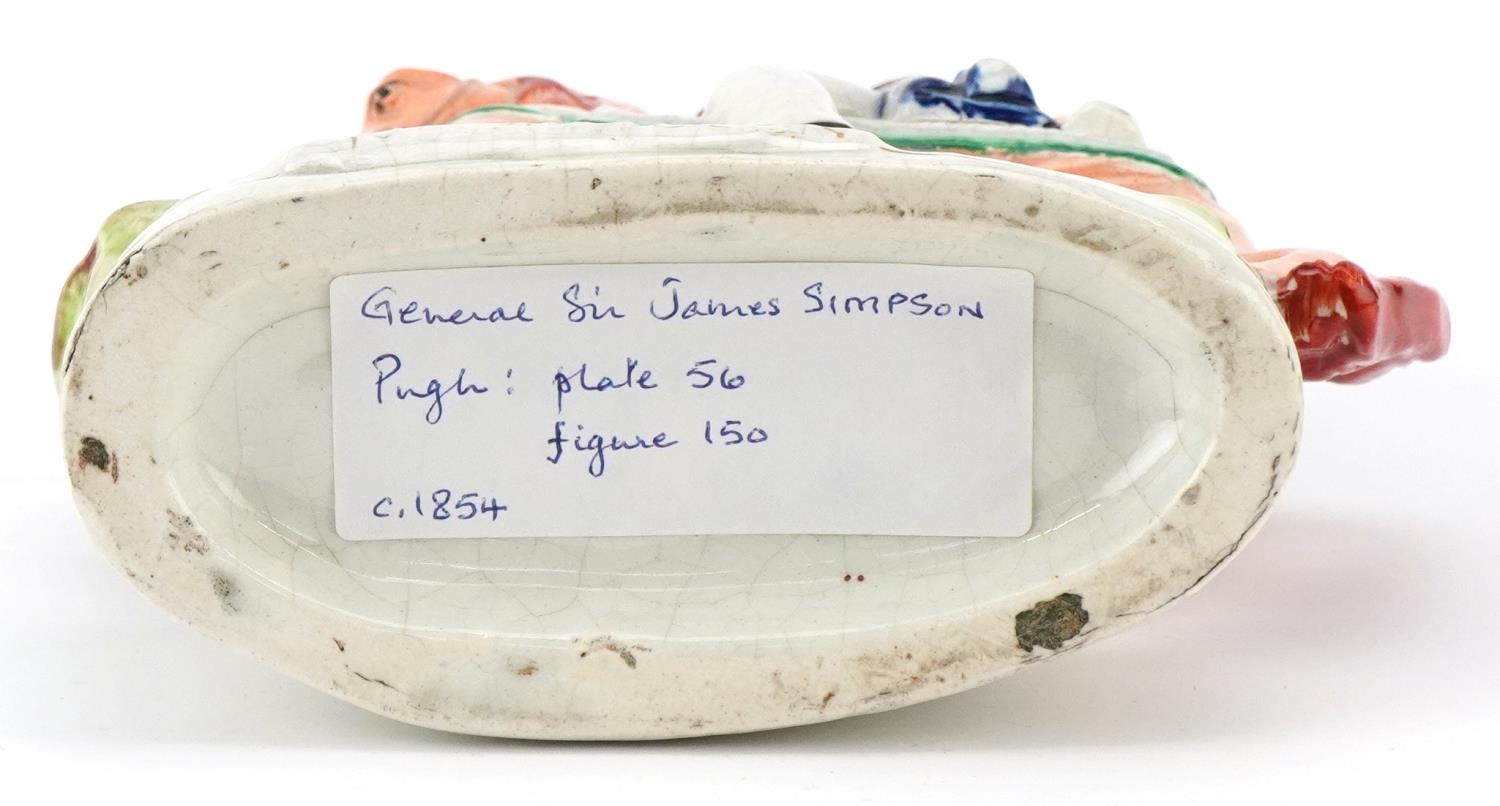 General Sir James SIMPSON
Pugh: plate 56
figure 150
c.1854